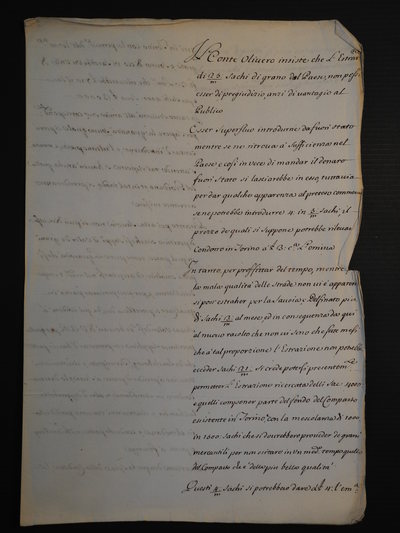 Il Conte Olivero insiste che l'Estraz.e
di 12/m Sachi di grano dal Paese, non possi
esser di pregiudizio, anzi di vantagio al
Publico
Esser superfluo introdurne da fuori stato
mentre se ne ritrova à sufficienza nel
Paese e così in vece di mandar il denaro
fuori Stato si lasciarebbe in esso, tuttavia
per dar qualche apparenza al preteso
se ne potrebbe introdurre 4. in 5/m sachi; il
prezzo de quali si suppone potrebbe
Condotto in Torino a £ 13: l'Emina
In tanto, per proffittar del tempo, mentre
la mala qualità delle Strade non vi è apparenza
si possi estraher per la Savoia e Delfinato più
di Sachi al mese, ed in conseguenza da qui
al nuovo racolto che non vi sono che sei mesi
che a tal proporzione l'Estrazione non potrebbe
ecceder sachi 12/m. si crede potersi presentem.te
permetter l'Estrazione ricercata delli Sac. 4000
e quelli componer parte del fondo del Comparto
esistente in Torino con la mescolanza di
in 1000: sachi che si dovrebbero proveder de grani
mercantili per non vitiare in un med.mo tempo quello
del Comparto che è della più bella qualità
Questi 4/m sachi si potrebbero dare à £ 4: l'em.a